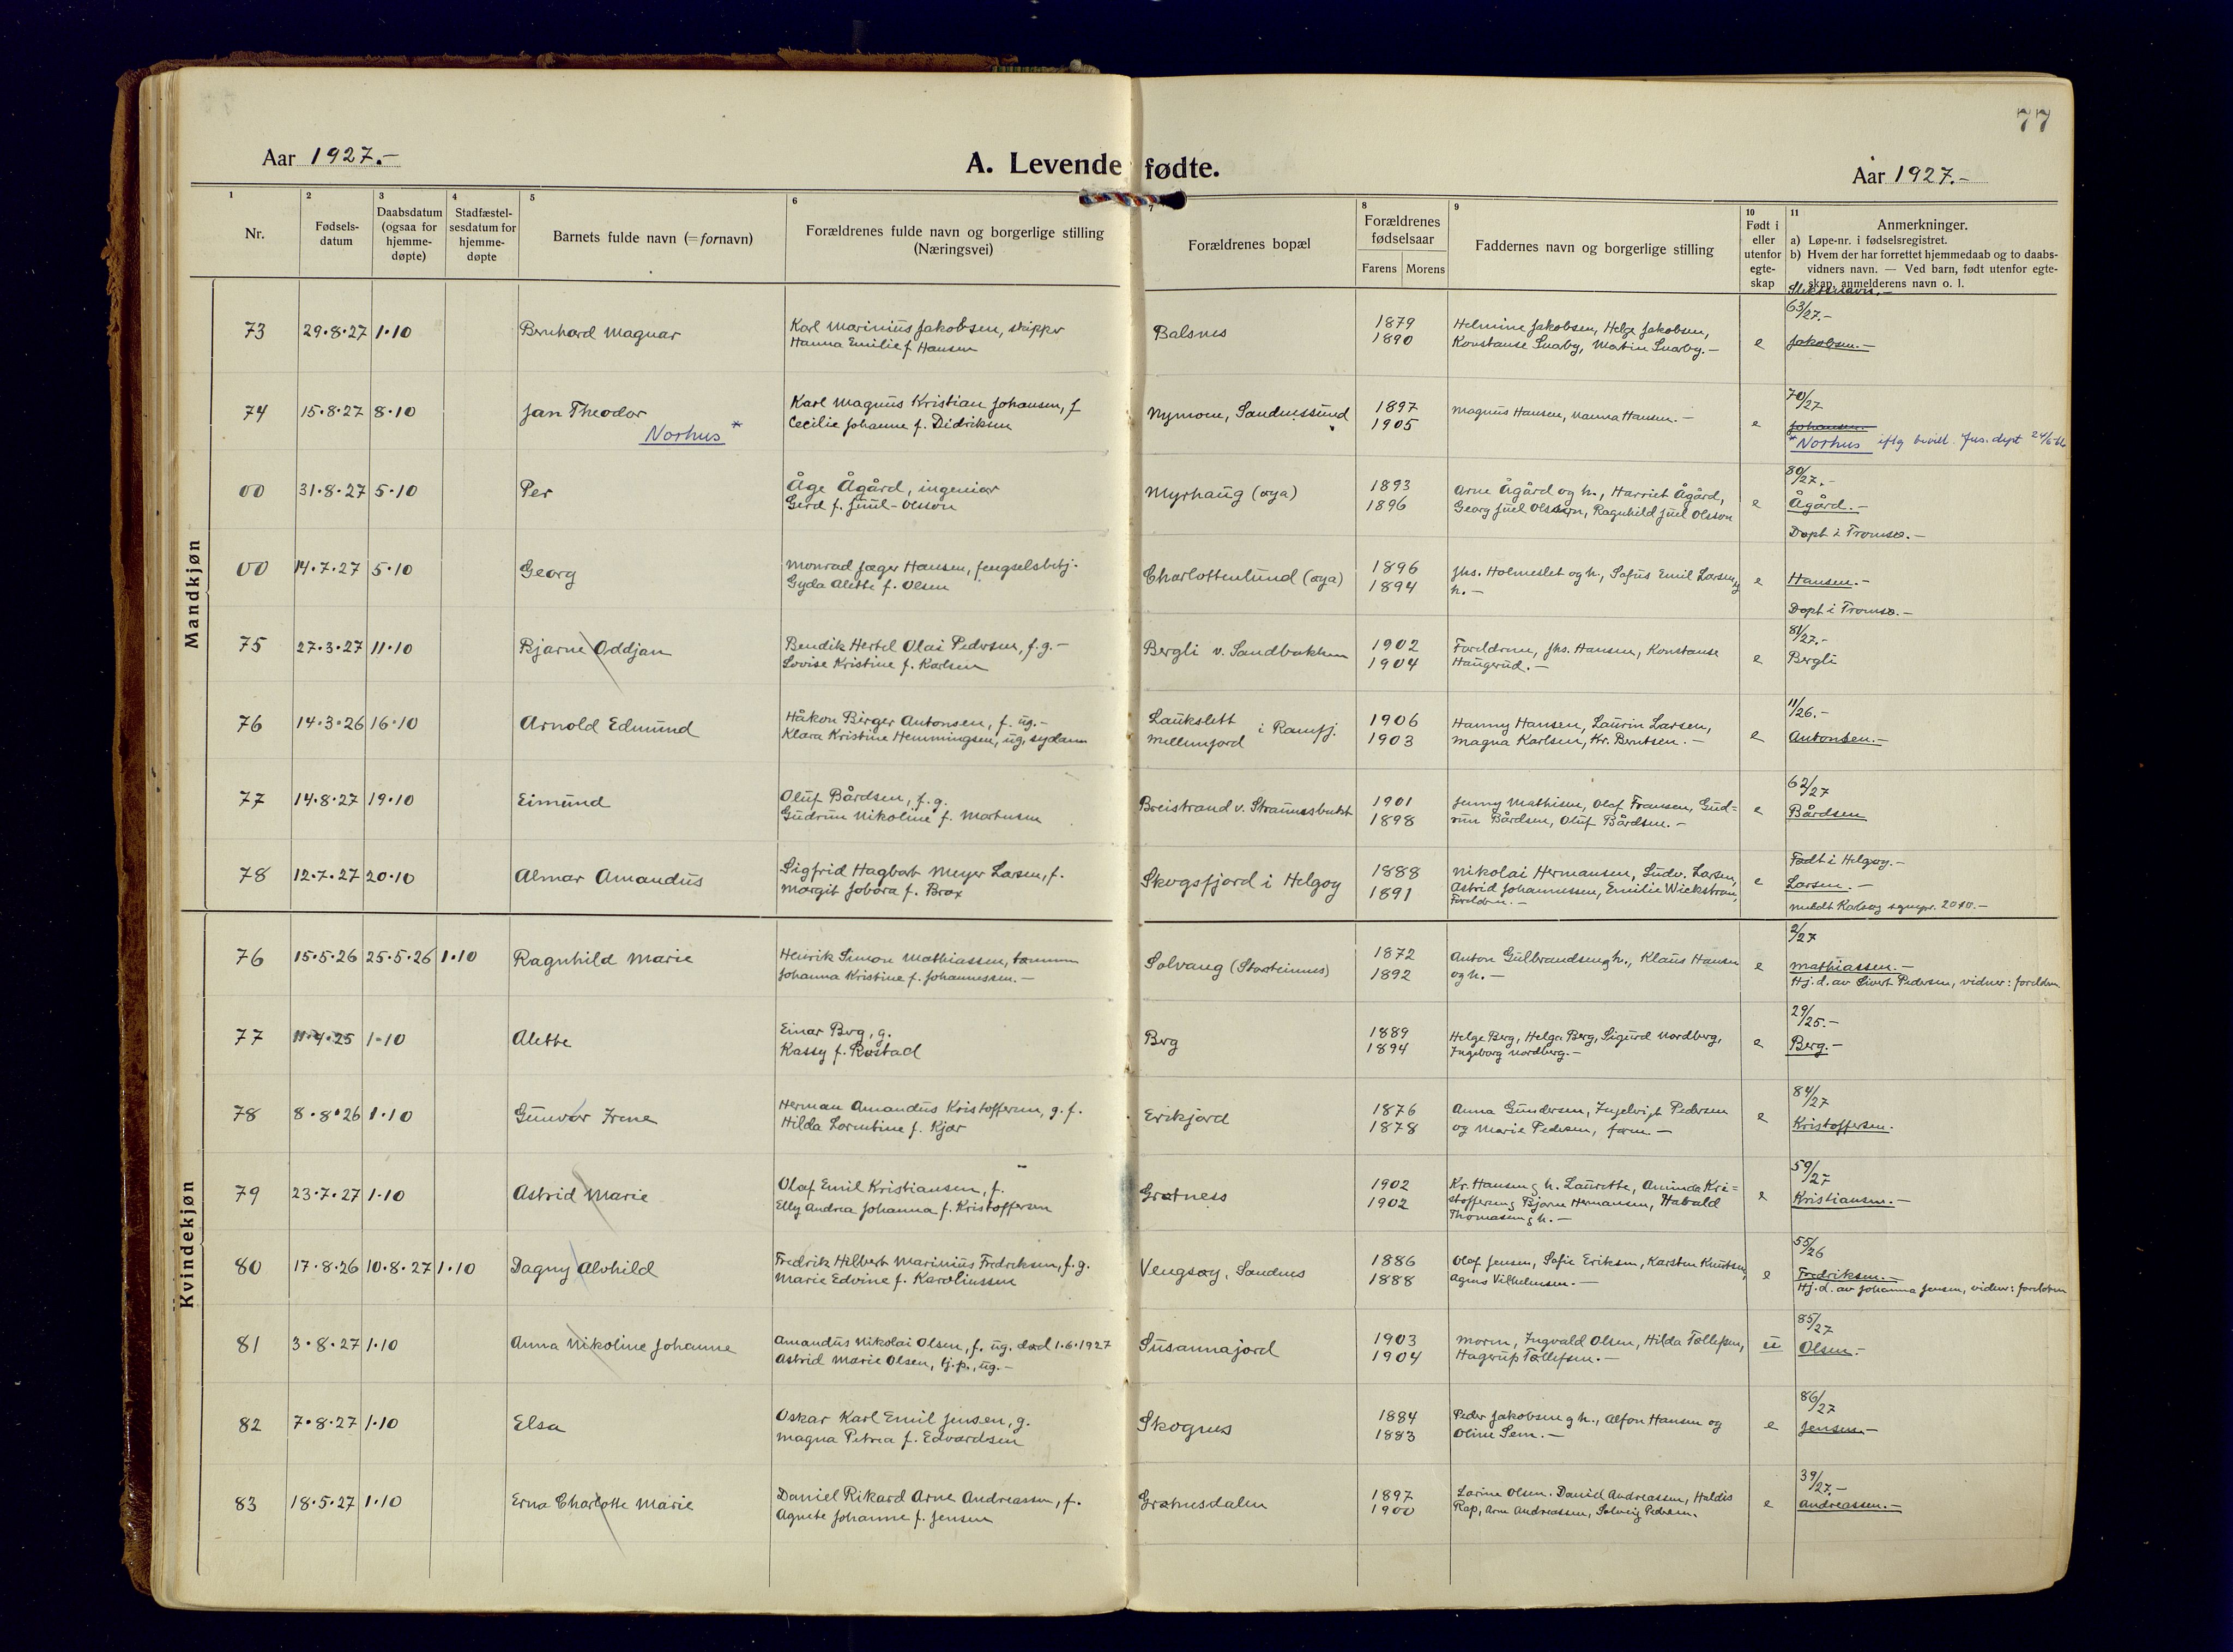 77
Aar 1927.-
A. Levende fødte.
Aar 1927.-
1 2 3 4 5 6 7 8 9 10 11
Nr.
Fødsels-
datum
Daabsdatum
(ogsaa for
hjemme-
døpte)
Stadfæstel-
sesdatum for
hjemme-
døpte
Barnets fulde navn (=fornavn)
Forældrenes fulde navn og borgerlige stilling
(Næringsvei)
Forældrenes bopæl
Forældrenes
fødselsaar
Farens Morens
Faddernes navn og borgerlige stilling
Født i
eller
utenfor
egte-
skap
Anmerkninger.
a) Løpe-nr. i fødselsregistret.
b) Hvem der har forrettet hjemmedaab og to daabs-
vidners navn. — Ved barn, født utenfor egte-
skap, anmelderens navn o. l.
Slektsnavn.-
Mandkjøn
73 29.8.27 1.10 Bernhard Magnar
Karl Marinius Jakobsen, skipper
Hanna Emilie f. Hansen
Balsnes
1879
1890
Helmine Jakobsen, Helge Jakobsen,
Konstanse Snarby, Martin Snarby.-
e
63/27.-
Jakobsen.-
74 15.8.27 8.10 Jan Theodor
Norhus *
Karl Magnus Kristian Johansen, f
Cecilie Johanne f. Didriksen
Nymoen, Sandnessund
1897
1905
Magnus Hansen, Nanna Hansen.-
e
70/27
Johansen
* Norhus iflg bevill. Jus. dept
00 31.8.27 5.10 Per
Åge Ågård, ingeniør
Gerd f. Juul-Olsson
Myrhaug (øya)
1893
1896
Arne Ågård og h., Harriet Ågård,
Georg Juel Olsson, Ragnhild Juel Olsson
e
80/27.-
Ågård.-
Døpt i Tromsø.-
00 14.7.27 5.10 Georg
Monrad Jæger Hansen, fengselsbetj.
Gyda Alette f. Olsen
Charlottenlund (øya)
1896
1894
Jhs. Holmeslet og h., Sofus Emil Larsen, g
h.-
e
Hansen.-
Døpt i Tromsø.-
75 27.3.27 11.10 Bjarne Oddjan
Bendik Hertel Olai Pedersen, f.g.-
Lovise Kristine f. Karlsen
Bergli v. Sandbakken
1902
1904
Foreldrene, Jhs. Hansen, Konstanse
Haugerud.-
e
81/27.-
Bergli
76 14.3.26 16.10 Arnold Edmund
Håkon Birger Antonsen, f. ug.-
Klara Kristine Hemmingsen, ug, sydame
Laukslett
Mellemjord i Ramfj.
1906
1903
Hanny Hansen, Laurin Larsen,
Magna Karlsen, Kr. Berntsen.-
e
11/26.-
Antonsen.-
77 14.8.27 19.10 Eimund
Oluf Bårdsen, f.g.
Gudrun Nikoline f. Martinsen
Breistrand v. Straumsbukt
1901
1898
Jenny Mathisen, Olaf Fransen, Gud=
run Bårdsen, Oluf Bårdsen.-
e
62/27
Bårdsen
78 12.7.27 20.10 Almar Amandus
Sigfrid Hagbart Meyer Larsen, f.
Margit Jobora f. Brox
Skogsfjord i Helgøy
1888
1891
Nikolai Hermansen, Ludv. Larsen,
Astrid Johannessen, Emilie Wickstrøm,
Foreldrene.-
e
Født i Helgøy.-
Larsen.-
Meldt Karlsøy sognepr. 20 10.-
Kvindekjøn
76 15.5.26 25.5.26 1.10 Ragnhild Marie
Henrik Simon Mathiassen, tømmerm
Johanna Kristine f. Johannessen.-
Solvang (Storsteinnes)
1872
1892
Anton Gulbrandsen g h., Klaus Hansen
og h.-
e
2/27
Mathiassen.-
Hj.d. av Sivert Pedersen, vidner: foreldrene
77 11.4.25 1.10 Alette
Einar Berg, g.
Kassy f. Rostad
Berg
1889
1894
Helge Berg, Helga Berg, Sigurd Nordberg,
Ingeborg Nordberg.-
e
29/25.-
Berg.-
78 8.8.26 1.10 Gunvor Irene
Herman Amandus Kristoffersen, g.f.
Hilda Lorentine f. Kjær
Erikjord
1876
1878
Anna Gundersen, Ingelvigt Pedersen
og Marie Pedersen, foren.-
e
84/27
Kristoffersen.
79 23.7.27 1.10 Astrid Marie
Olaf Emil Kristiansen, f.
Elly Andrea Johanna f. Kristoffersen
Grøtness
1902
1902
Kr. Hansen g h. Laurette, Aminda Kri=
stoffersen g Bjarne Hermansen, Habald
Thomasen g h.-
e
59/27
Kristiansen.-
80 17.8.26 10.8.27 1.10 Dagny Alvhild
Fredrik Hilbert Marinius Fredriksen, f.g.
Marie Edvine f. Karoliussen
Vengsøy, Sandnes
1886
1888
Olaf Jensen, Sofie Eriksen, Karsten Knutsen,
Agnes Vilhelmsen.-
e
55/26
Fredriksen.-
Hj.d. av Johanna Jensen, vidner: foreldrene
81 3.8.27 1.10 Anna Nikoline Johanne
Amandus Nikolai Olsen, f. ug. død 1.6.1927
Astrid Marie Olsen, tj.p., ug.-
Susannajord
1903
1904
Moren, Ingvald Olsen, Hilda Tollefsen,
Hagerup Tollefsen.-
u
85/27
Olsen.-
82 7.8.27 1.10 Elsa
Oskar Karl Emil Jensen, g.
Magna Petrea f. Edvardsen
Skognes
1884
1883
Peder Jakobsen g h., Alfon Hansen og
Oline Sem.-
e
86/27
Jensen.-
83 18.5.27 1.10 Erna Charlotte Marie
Daniel Rikard Arne Andreassen, f.
Agnete Johanne f. Jensen
Grønnesdalen
1897
1900
Larine Olsen. Daniel Andreassen, Haldis
Rap, Arne Andreassen, Solveig Pedersen.
e
39/27.-
Andreassen.-